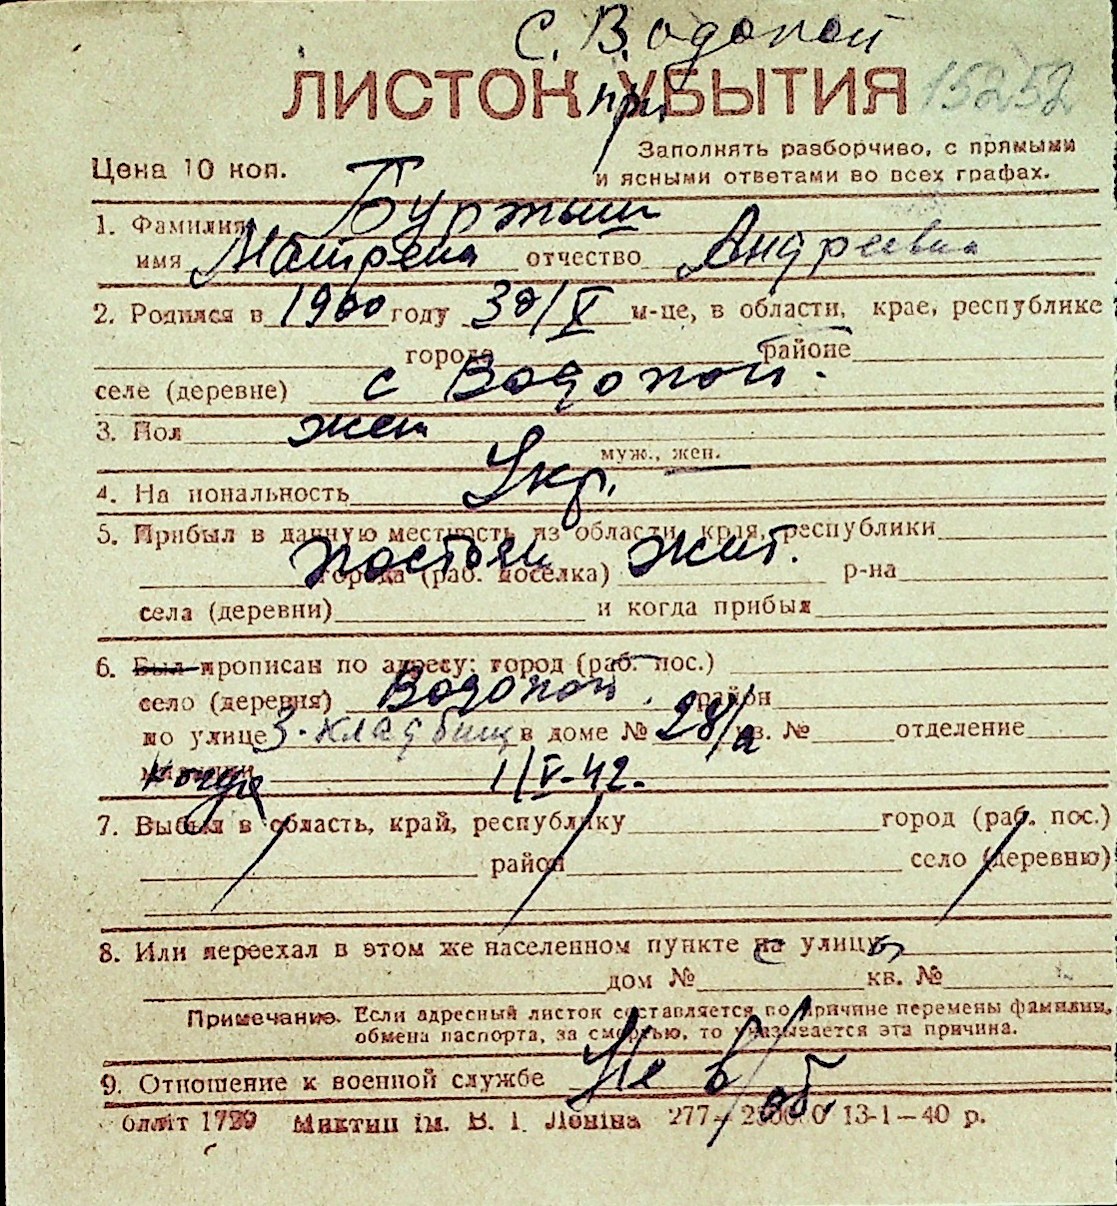 С. Водопой
ЛИСТОК УБЫТИЯ 15252
при
Цена 10 коп.
Заполнять разборчиво, с прямыми
и ясными ответами во всех графах.
1. Фамилия Буржыш
имя Матрена отчество Андреевна
2. Родился в 1900 году 30/X м-це, в области, крае, республике
города районе
селе (деревне) с Водопой.
3. Пол жен
муж., жен.
4. Национальность Укр.
5. Прибыл в данную местность из области, края, республики
постоян жит.
города (раб. поселка) р-на
села (деревни) и когда прибыл
6. Был прописан по адресу: город (раб. пос.)
село (деревня) Водопой. район
по улице 3-кладбищ в доме № 28/а кв. № отделение
милиции Когда 1/V-42.
7. Выбыл в область, край, республику город (раб. пос.)
район село (деревню)
8. Или переехал в этом же населенном пункте с улицы
дом № кв. №
Примечание. Если адресный листок составляется по причине перемены фамилии,
обмена паспорта, за смертью, то указывается эта причина.
9. Отношение к военной службе Не в/об.
Миктип ім. В. І. Леніна 277— 13-1—40 р.